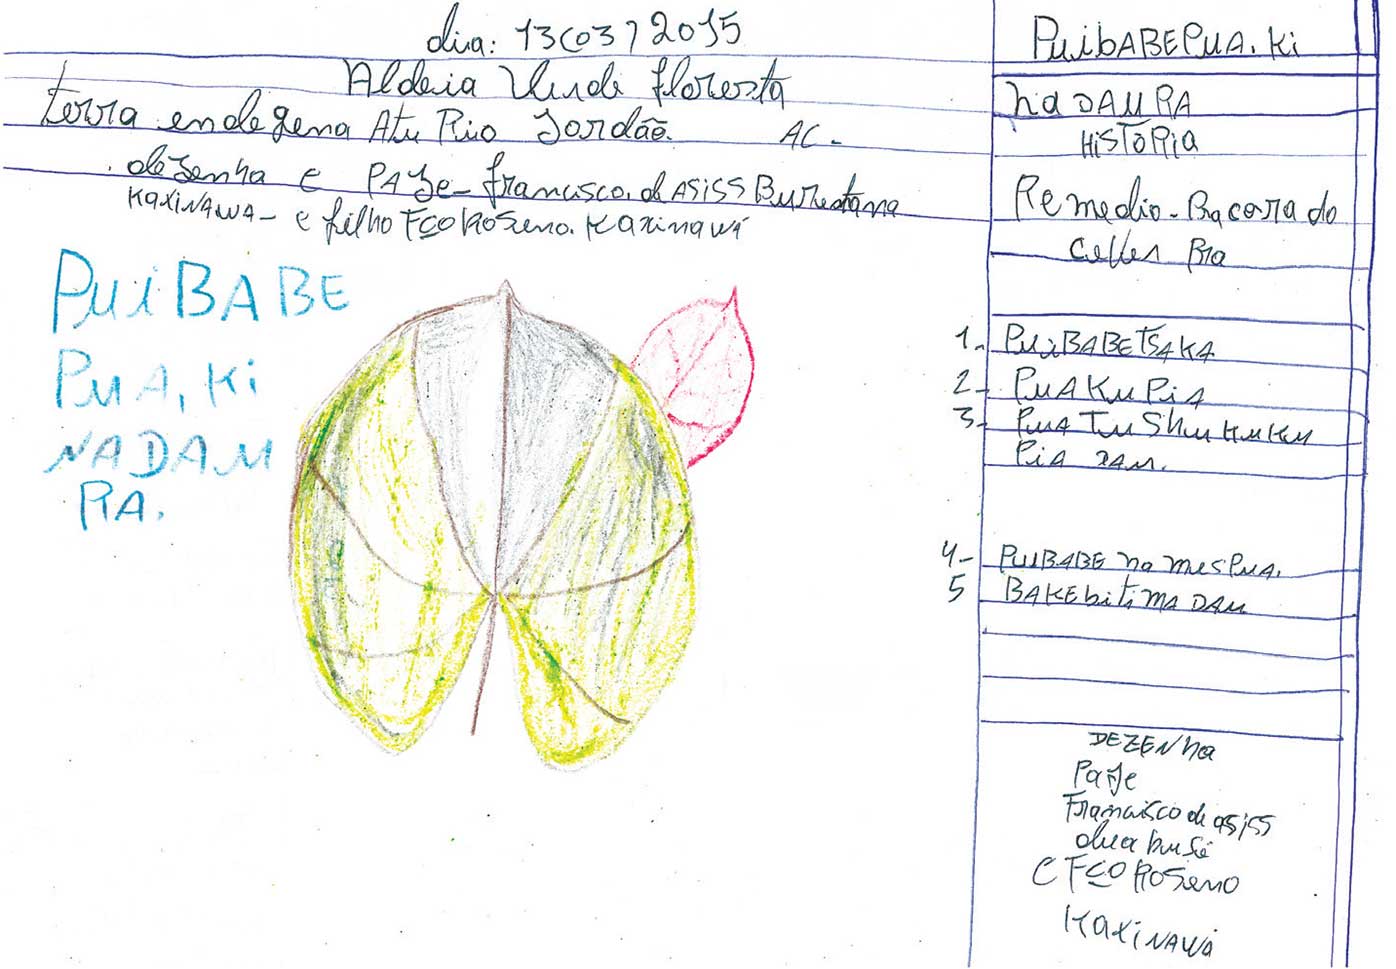 dia: 13(03)2015
Aldeia Verde floresta
terra endegena Atu Rio Jordão. AC-
dezenha e PAJe- francisco. de ASiSS Burestana
KAXiNAWA- e filho FCO ROSeno. Kaxinawá
PUiBABE
PUA, Ki
NADAM
RA.
PuibABEPUA. Ki
NADAMRA
HiSTORiA
Remedio-
1- PUiBABETSAKA
2- PUAKUPiA
3- PUATUSHUKUKU
PiA XAM.
4- PUiBABE na mesPUA.
5 BAKEbiTiMADAM
DEZENha
PaJe
Framcisco de asiss
e FCO ROSeno
KaxiNAWá